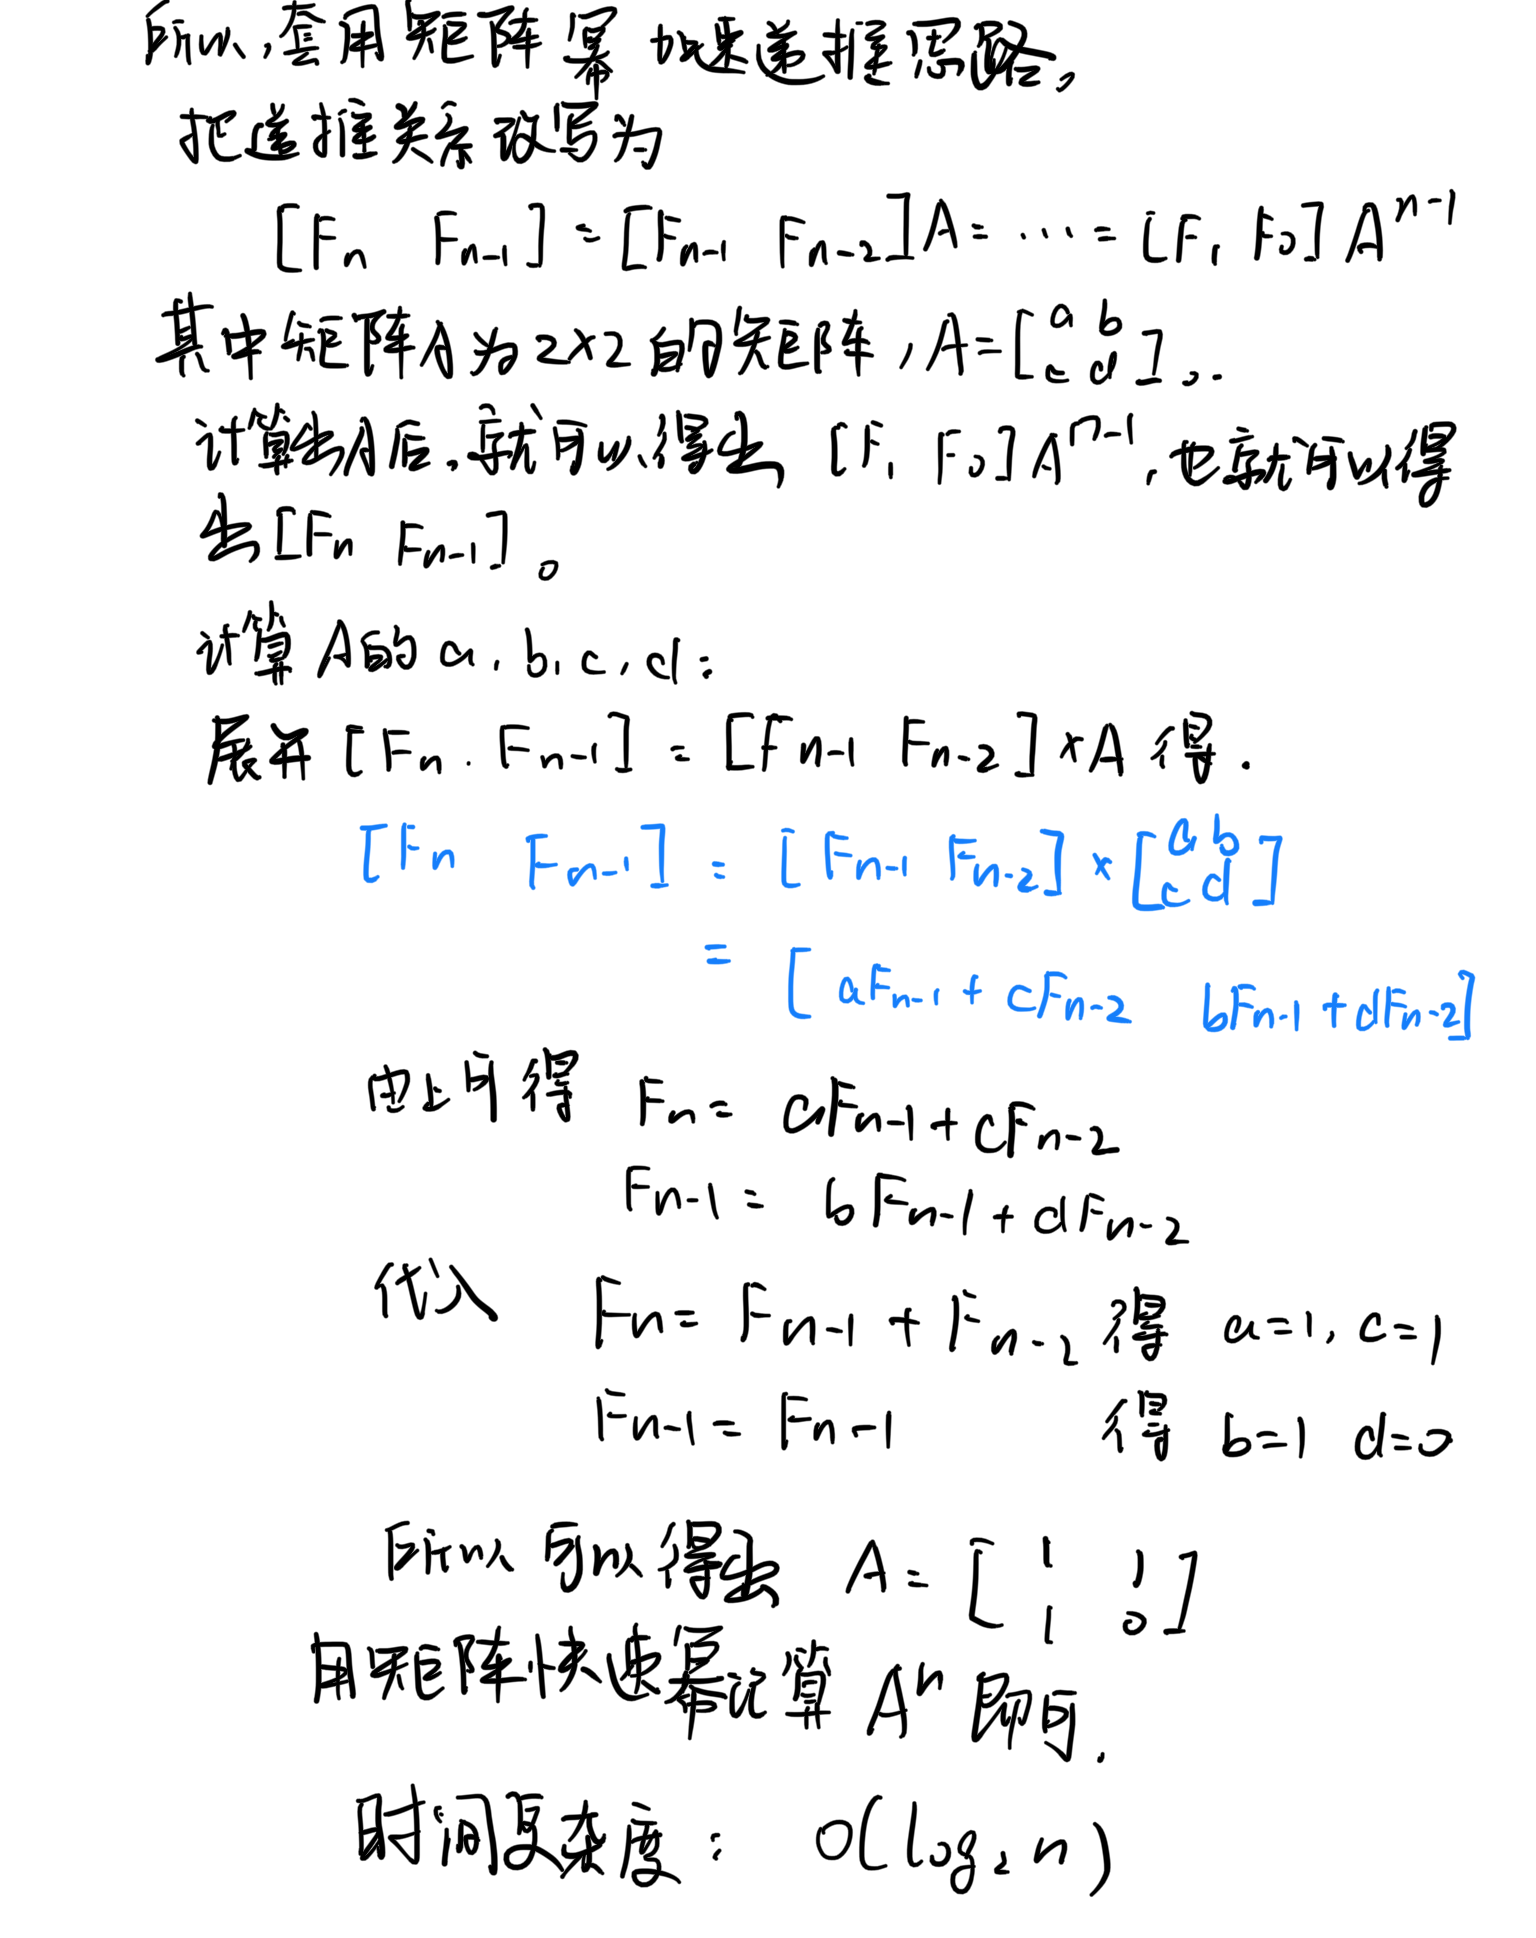 所以,套用矩阵幂加速递推思路。
把递推关系改写为
[Fn Fn-1] = [Fn-1 Fn-2]A = ··· = [F1 F0]A^n-1
其中矩阵A为2×2的矩阵,A=[a b
c d]。
计算出A后,就可以得出 [F1 F0]A^n-1,也就可以得
出[Fn Fn-1]。
计算A的a,b,c,d:
展开[Fn Fn-1] = [Fn-1 Fn-2]×A得.
[Fn Fn-1] = [Fn-1 Fn-2]×[a b
c d]
= [aFn-1 + cFn-2 bFn-1 + dFn-2]
由上可得 Fn = aFn-1 + cFn-2
Fn-1 = bFn-1 + dFn-2
代入 Fn = Fn-1 + Fn-2 得 a=1, c=1
Fn-1 = Fn-1 得 b=1 d=0
所以可以得出 A = [1 1
1 0]
用矩阵快速幂计算 A^n 即可.
时间复杂度: O(log2n)